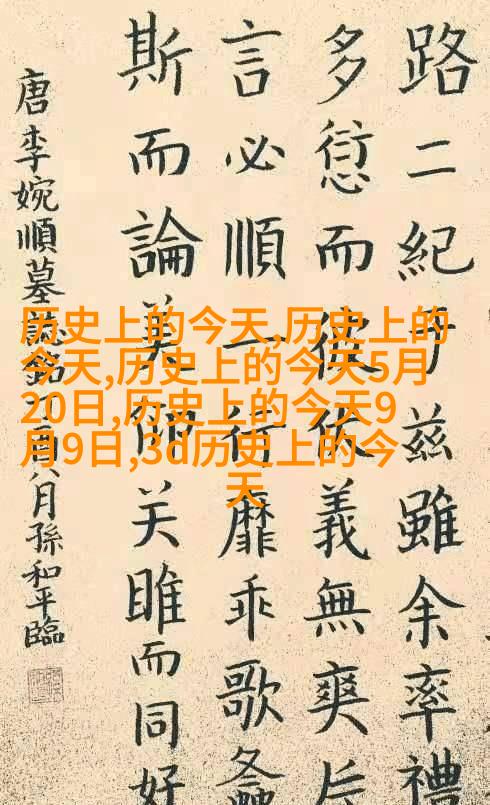 路二紀于兹雖余率禮
多愆而依義無爽
言必順一行靡乖歌螽
斯而論美陳关雎而同好
唐李婉順墓誌銘八月孫和平臨
历史上的今天,历史上的
今天,历史上的今天5月
20日,历史上的今天9
月9日,3d历史上的今
天